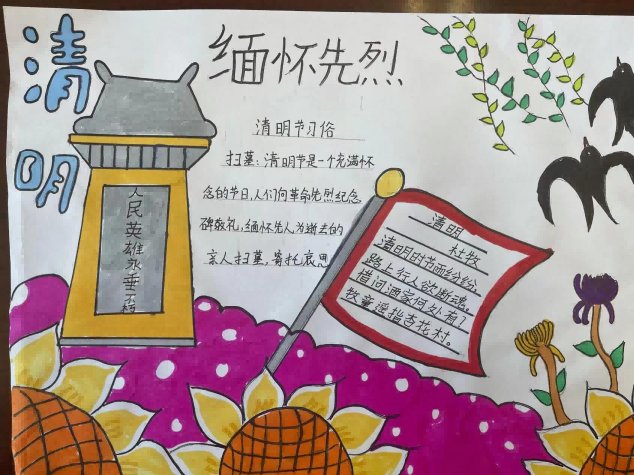 清明
缅怀先烈
清明节习俗
扫墓:清明节是一个充满怀
念的节日,人们向革命先烈纪念
碑敬礼,缅怀先人,为逝去的
亲人扫墓,寄托哀思
人民英雄永垂不朽
清明
杜牧
清明时节雨纷纷,
路上行人欲断魂。
借问酒家何处有?
牧童遥指杏花村。